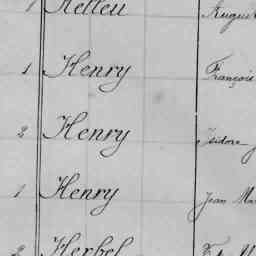 1 Helleu August
1 Henry François
2 Henry Isidore
1 Henry Jean Ma
2 Herbel